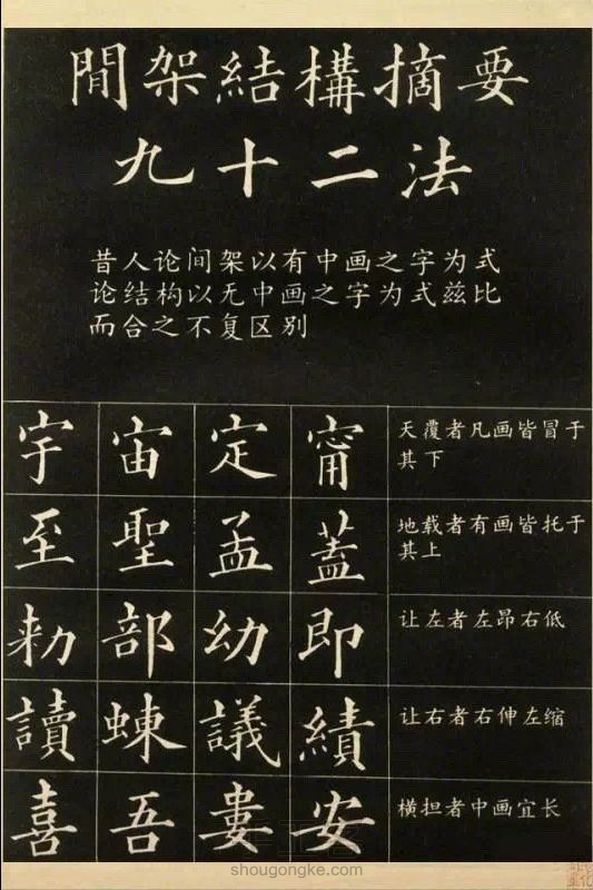 間架結構摘要
九十二法
昔人论间架以有中画之字为式
论结构以无中画之字为式兹比
而合之不复区别
宇 宙 定 甯 天覆者凡画皆冒于
其下
至 聖 孟 蓋 地载者有画皆托于
其上
勑 部 幼 即 让左者左昂右低
讀 蝀 議 績 让右者右伸左缩
喜 吾 婁 安 横担者中画宜长
shougongke.com